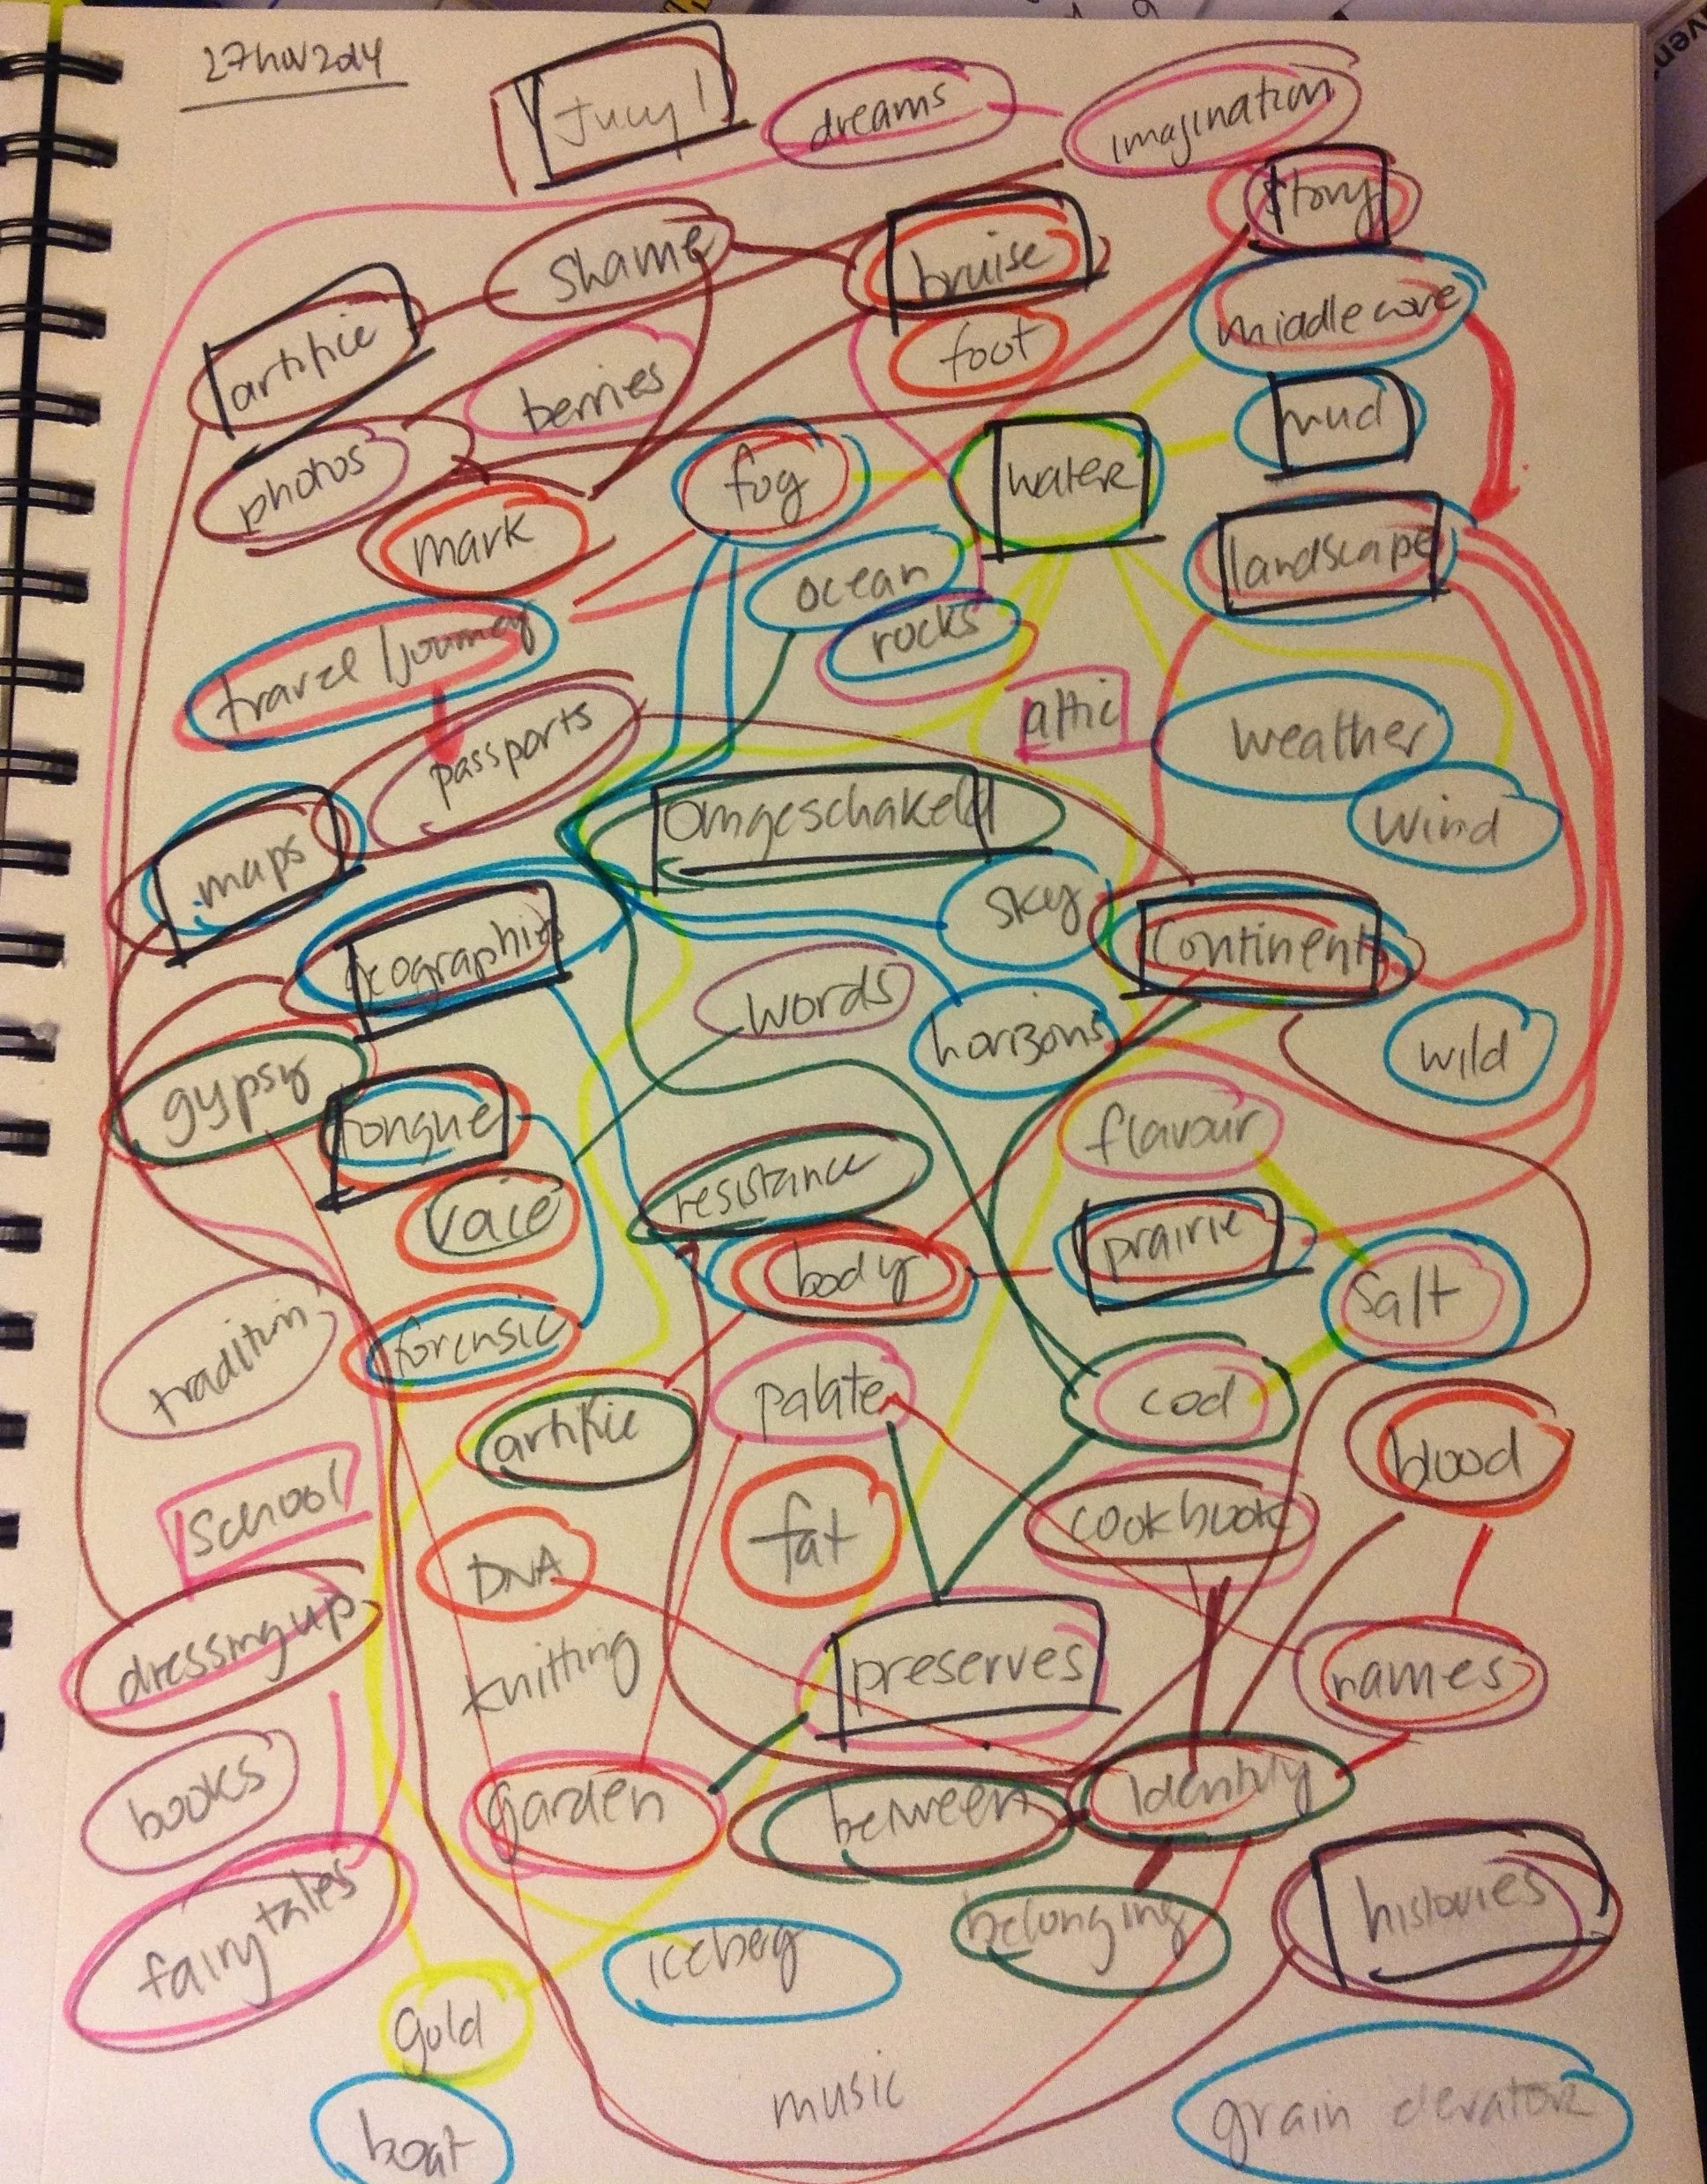 27 nov 2014
Jucy!
dreams
imagination
story
shame
bruise
middle core
artifice
berries
foot
mud
photos
fog
water
mark
landscape
ocean
rocks
travel / journey
attic
weather
passports
wind
omgeschakeld
maps
sky
continent
geographies
words
horizons
wild
gypsy
tongue
flavour
voice
resistance
prairie
body
salt
tradition
forensic
palate
cod
artifice
blood
school
fat
cookbook
DNA
dressing up
knitting
preserves
names
books
garden
between
identity
fairytales
iceberg
belonging
histories
gold
music
grain elevator
boat